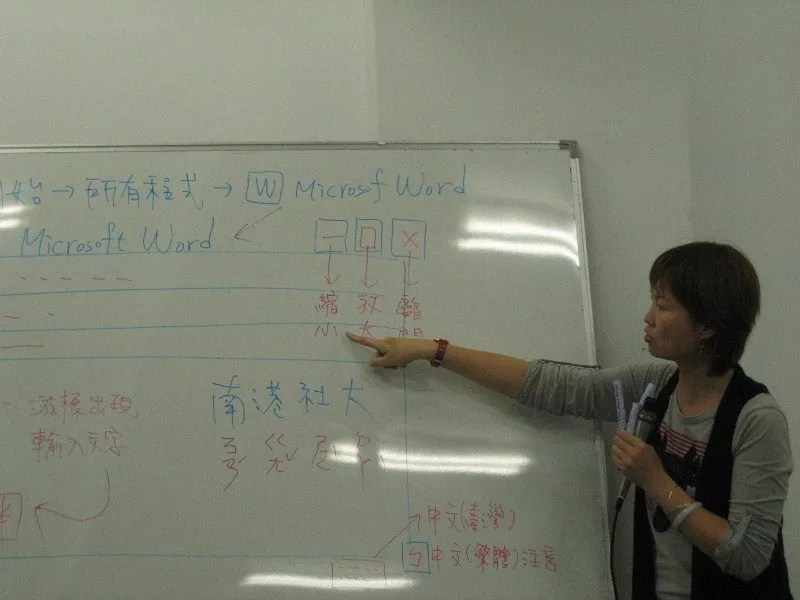 始→所有程式→W Microsof Word
Microsoft Word
— □ ×
縮小 放大 離開
游標出現,
輸入文字
南港社大
中文(臺灣)
中文(繁體)注音